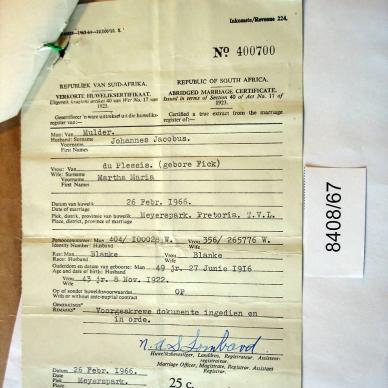 Inkomste/Revenue 224.
No 400700
REPUBLIEK VAN SUID-AFRIKA. REPUBLIC OF SOUTH AFRICA.
VERKORTE HUWELIKSERTIFIKAAT. ABRIDGED MARRIAGE CERTIFICATE.
Uitgereik kragtens artikel 40 van Wet No. 17 van 1923. Issued in terms of Section 40 of Act No. 17 of 1923.
Gesertifiseer 'n ware uittreksel uit die huweliksregister van:— Certified a true extract from the marriage register of:—
Man: Van Mulder.
Husband: Surname
Voorname Johannes Jacobus.
First Names
Vrou: Van du Plessis. (gebore Fick)
Wife: Surname
Voorname Martha Maria
First Names
Datum van huwelik 26 Febr. 1966.
Date of marriage
Plek, distrik, provinsie van huwelik Meyerspark. Pretoria. T.V.L.
Place, district, province of marriage
Persoonsnommer: Man 404/ I00028 W. Vrou 356/ 265776 W.
Identity Number: Husband Wife
Ras: Man Blanke Vrou Blanke
Race: Husband Wife
Ouderdom en datum van geboorte: Man 49 jr. 27 Junie 1916
Age and date of birth: Husband
Vrou 43 jr. 8 Nov. 1922.
Wife
Op of sonder huweliksvoorwaardes OP
With or without ante-nuptial contract
OPMERKINGS Voorgeskrewe dokumente ingedien en
REMARKS in orde.
Huweliksbevestiger, Landdros, Registrateur, Assistent-registrateur.
Marriage Officer, Magistrate, Registrar, Assistant Registrar.
Datum 26 Febr. 1966.
Date
Plek Meyerspark. 25 c.
Place
8408/67